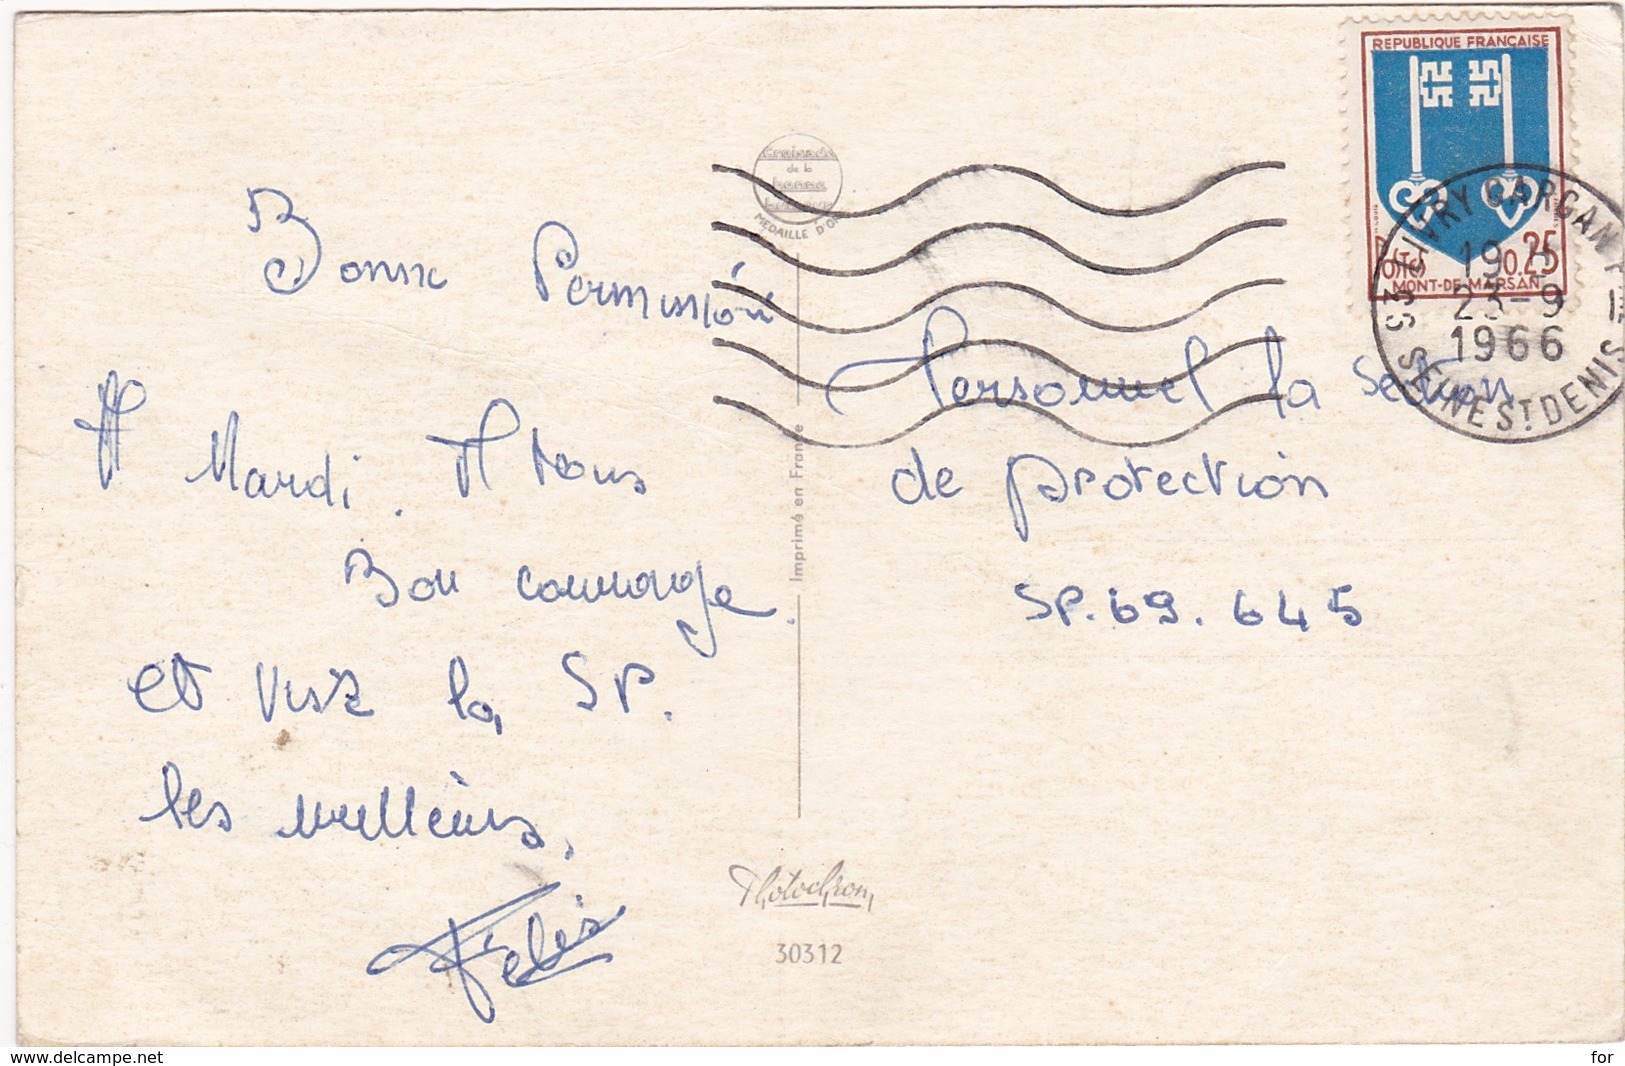 Bonne Permission
A Mardi. A tous
Bon courage.
et vive la SP.
les meilleurs.
Félix
Croisade
de la
bonne
MÉDAILLE D'OR
Imprimé en France
Photochrom
30312
REPUBLIQUE FRANÇAISE
POSTES 0.25
MONT-DE-MARSAN
LIVRY GARGAN
19 H
23-9
1966
SEINE ST DENIS
Personnel la section
de protection
SP. 69. 645
www.delcampe.net
for